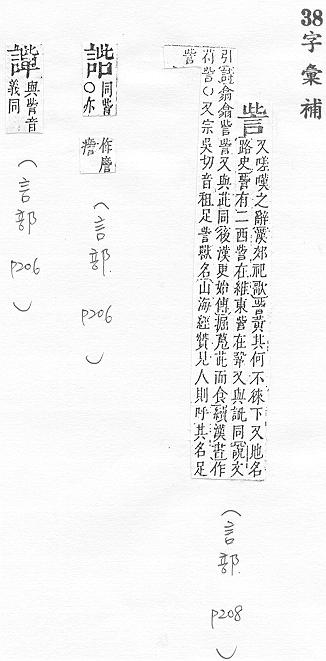 38字彙補
訾
又嗟嘆之辭漢郊祀歌訾黃其何不徠下又地名
路史訾有二西訾在維東訾在鞏又與訿同說文
引詩翕翕訾訾又與此同後漢更始傳掘鳧茈而食續漢書作
苻訾〇又宗吳切音祖足訾獸名山海經贊見人則呼其名足
訾
(言部 p208)
同訾作䛗
〇亦
(言部 p206)
與訾音
義同
(言部 p206)